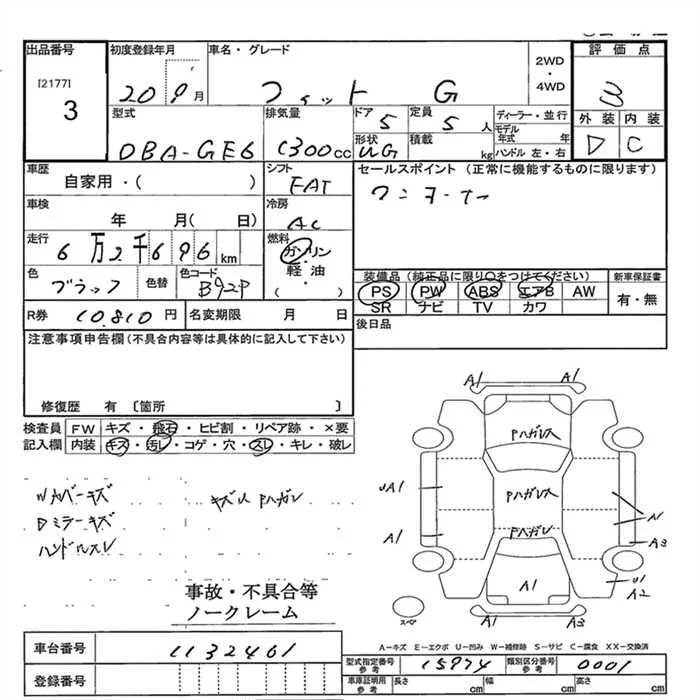 出品番号 初度登録年月 車名・グレード 2WD・4WD 評価点
[2177] 3 20 9月 フィット G 3
型式 排気量 ドア 定員 ディーラー・並行 外装 内装
DBA-GE6 1300cc 5 5人 モデル年式 年 D C
形状 UG 積載 kg ハンドル 左・右
車歴 シフト セールスポイント (正常に機能するものに限ります)
自家用・( ) FAT ワンオーナー
車検 冷房
年 月( 日) AC
走行 燃料
6万2千696km ガソリン・軽油・( )
色 色替 色コード 装備品 (純正品に限り○をつけてください) 新車保証書
ブラック B92P PS PW ABS エアB AW 有・無
SR ナビ TV カワ
R券 10,810円 名変期限 月 日 後日品
注意事項申告欄 (不具合内容等は具体的に記入して下さい)
修復歴 有 〔箇所 〕
検査員 FW キズ・飛石・ヒビ割・リペア跡・×要
記入欄 内装 キズ・汚レ・コゲ・穴・スレ・キレ・破レ
A1 A1
Pハガレ
Wカバーキズ キズU Pハガレ UA1 Pハガレ
Dミラーキズ N
ハンドルスレ A1 Pハガレ A3
A1 U1
A2
事故・不具合等
ノークレーム
スペア A1 A3
A-キズ E-エクボ U-凹み W-補修跡 S-サビ C-腐食 XX-交換済
車台番号 1132461
型式指定番号 参考 15974 類別区分番号 参考 0001
登録番号
車庫証明用 参考 長さ cm 幅 cm 高さ cm